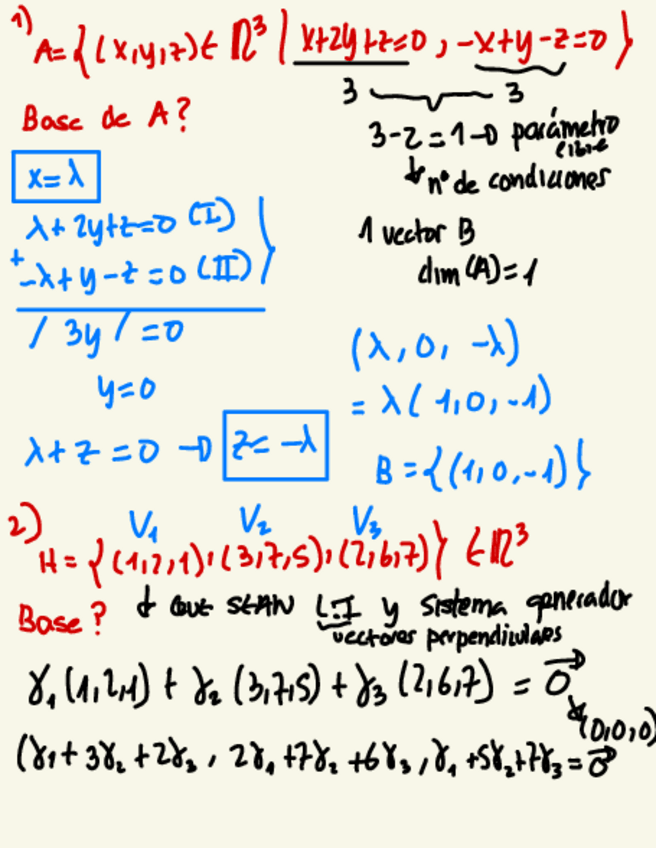 1)
A={(x,y,z)∈ℝ³ | x+2y+z=0, -x+y-z=0}
3 3
Base de A?
3-2=1→ parámetro libre
nº de condiciones
x=λ
λ+2y+z=0 (I)
+ -λ+y-z=0 (II)
/ 3y / =0
y=0
λ+z=0 → z=-λ
1 vector B
dim(A)=1
(λ, 0, -λ)
=λ(1,0,-1)
B={(1,0,-1)}
2)
V₁ V₂ V₃
H={(1,2,1),(3,7,5),(2,6,7)} ∈ℝ³
Base? ↓ que sean L.I y sistema generador
vectores perpendiculares
γ₁(1,2,1)+γ₂(3,7,5)+γ₃(2,6,7)=0⃗
(0,0,0)
(γ₁+3γ₂+2γ₃, 2γ₁+7γ₂+6γ₃, γ₁+5γ₂+7γ₃=0⃗